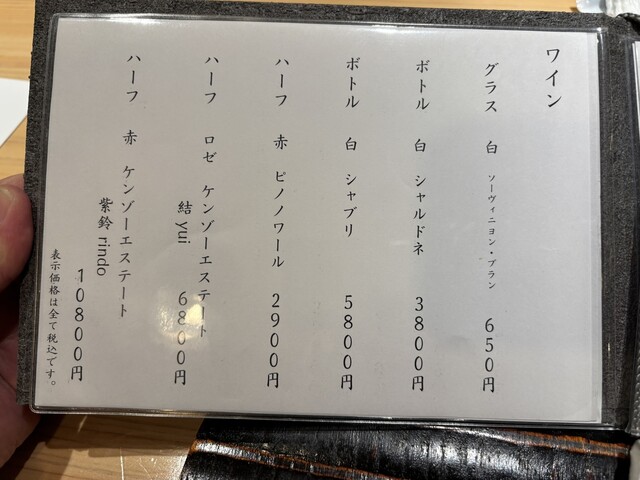 ワイン
グラス 白 ソーヴィニヨン・ブラン 650円
ボトル 白 シャルドネ 3800円
ボトル 白 シャブリ 5800円
ハーフ 赤 ピノノワール 2900円
ハーフ ロゼ ケンゾーエステート
結 yui 6800円
ハーフ 赤 ケンゾーエステート
紫鈴 rindo
10800円
表示価格は全て税込です。